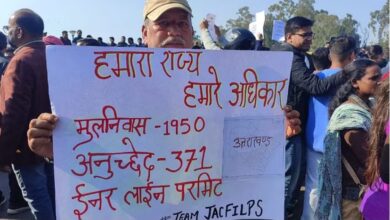 हमारा राज्य
हमारे अधिकार
मुलनिवास -1950
उत्तराखण्ड
अनुच्छेद -371
ईनर लाईन परमिट
TEAM JACFILPS